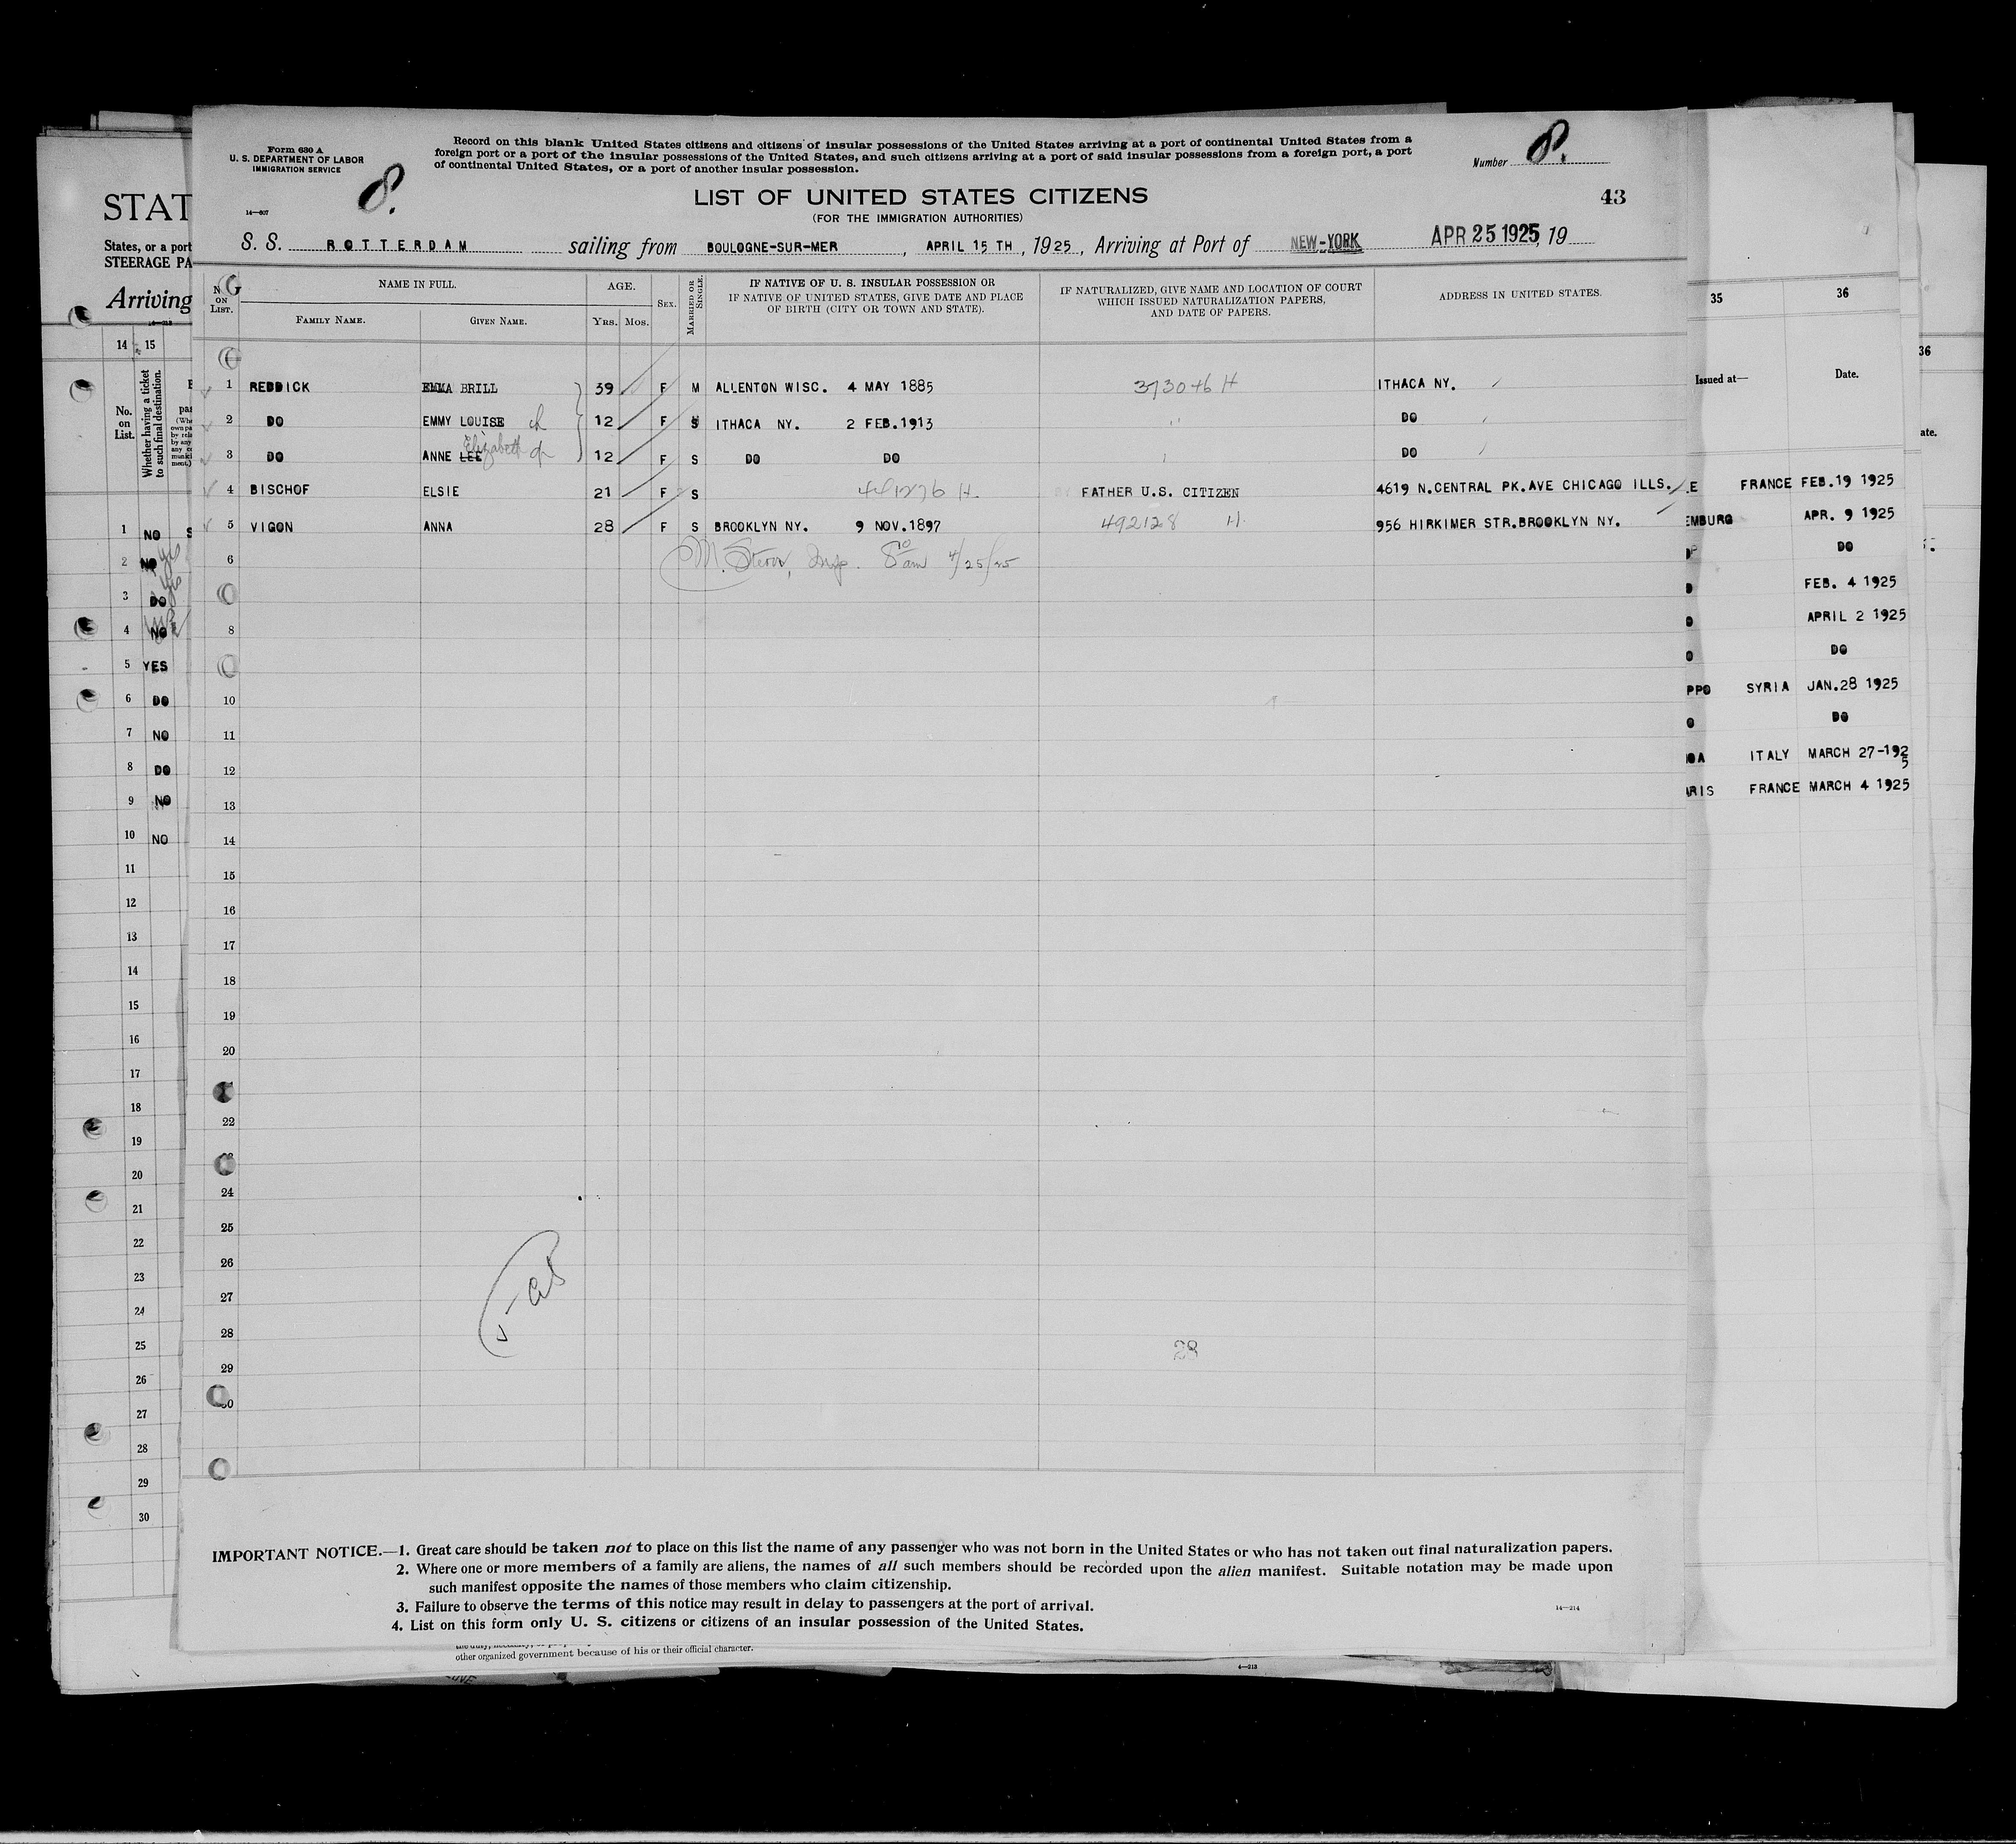 Form 630 A
U. S. DEPARTMENT OF LABOR
IMMIGRATION SERVICE
14—607
8.
Record on this blank United States citizens and citizens of insular possessions of the United States arriving at a port of continental United States from a
foreign port or a port of the insular possessions of the United States, and such citizens arriving at a port of said insular possessions from a foreign port, a port
of continental United States, or a port of another insular possession.
Number 8.
LIST OF UNITED STATES CITIZENS
(FOR THE IMMIGRATION AUTHORITIES)
43
S. S. ROTTERDAM sailing from BOULOGNE-SUR-MER, APRIL 15 TH, 1925, Arriving at Port of NEW-YORK APR 25 1925, 19
ON LIST. NAME IN FULL. AGE. SEX. MARRIED OR SINGLE. IF NATIVE OF U. S. INSULAR POSSESSION OR IF NATIVE OF UNITED STATES, GIVE DATE AND PLACE OF BIRTH (CITY OR TOWN AND STATE). IF NATURALIZED, GIVE NAME AND LOCATION OF COURT WHICH ISSUED NATURALIZATION PAPERS, AND DATE OF PAPERS. ADDRESS IN UNITED STATES.
FAMILY NAME. GIVEN NAME. YRS. MOS.
1 REDDICK EMMA BRILL 39 F M ALLENTON WISC. 4 MAY 1885 373046 H ITHACA NY.
2 DO EMMY LOUISE ch 12 F S ITHACA NY. 2 FEB.1913 " DO
3 DO ANNE LEE Elizabeth ch 12 F S DO DO DO
4 BISCHOF ELSIE 21 F S FATHER U.S. CITIZEN 4619 N.CENTRAL PK.AVE CHICAGO ILLS.
5 VIGON ANNA 28 F S BROOKLYN NY. 9 NOV.1897 492128 H. 956 HIRKIMER STR.BROOKLYN NY.
6 Insp. 8 am 4/25/25
8
10
11
12
13
14
15
16
17
18
19
20
22
24
25
26
27
28
29
28
IMPORTANT NOTICE.—1. Great care should be taken not to place on this list the name of any passenger who was not born in the United States or who has not taken out final naturalization papers.
2. Where one or more members of a family are aliens, the names of all such members should be recorded upon the alien manifest. Suitable notation may be made upon
such manifest opposite the names of those members who claim citizenship.
3. Failure to observe the terms of this notice may result in delay to passengers at the port of arrival.
4. List on this form only U. S. citizens or citizens of an insular possession of the United States.
14—214
other organized government because of his or their official character.
STAT
States, or a port
STEERAGE PA
Arriving
14 15
No. on List.
Whether having a ticket to such final destination.
1 NO
2 NO yes
3 DO yes
4 NO
5 YES
6 DO
7 NO
8 DO
9 NO
10 NO
11
12
13
14
15
16
17
18
19
20
21
22
23
24
25
26
27
28
29
30
35 36
Issued at— Date.
E FRANCE FEB.19 1925
EMBURG APR. 9 1925
DO
FEB. 4 1925
APRIL 2 1925
DO
PPO SYRIA JAN.28 1925
DO
OA ITALY MARCH 27-1925
ARIS FRANCE MARCH 4 1925
36
ate.